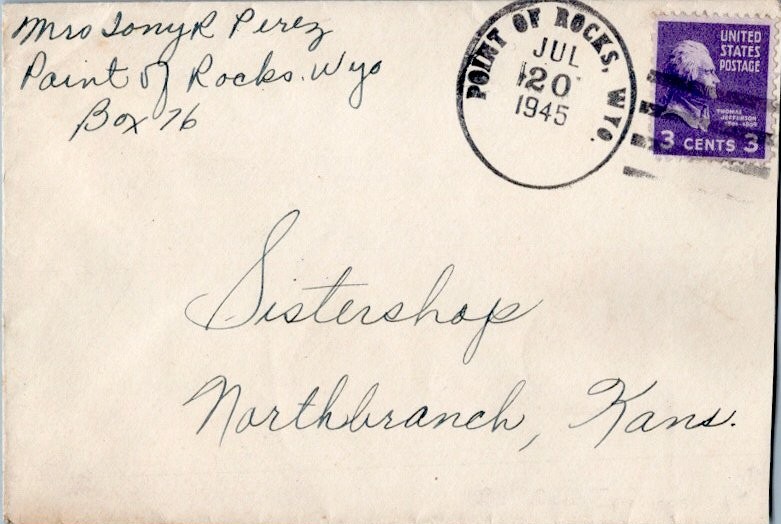 Mrs Tony R Perez
Point of Rocks. Wyo
Box 76
POINT OF ROCKS, WYO.
JUL
20
1945
UNITED
STATES
POSTAGE
THOMAS
JEFFERSON
3 CENTS 3
Sistershop
Northbranch, Kans.